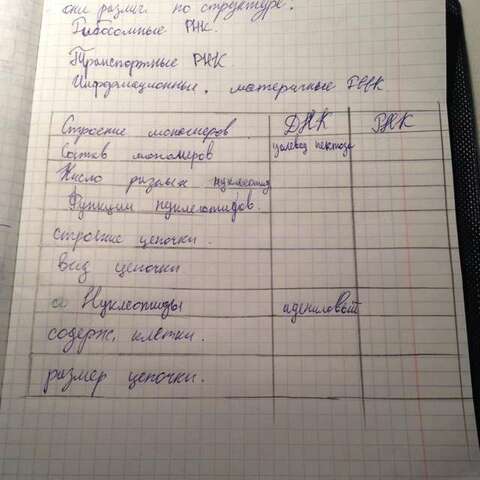 они различ. по структуре.
Рибосомные РНК.
Транспортные РНК
Информационные, материчные РНК
Строение мономеров. ДНК РНК
Состав мономеров углевод пентоза
Число разных нуклеотид
Функции нуклеотидов.
строение цепочки.
вид цепочки
Нуклеотиды адениловый
содерж. клетки.
размер цепочки.